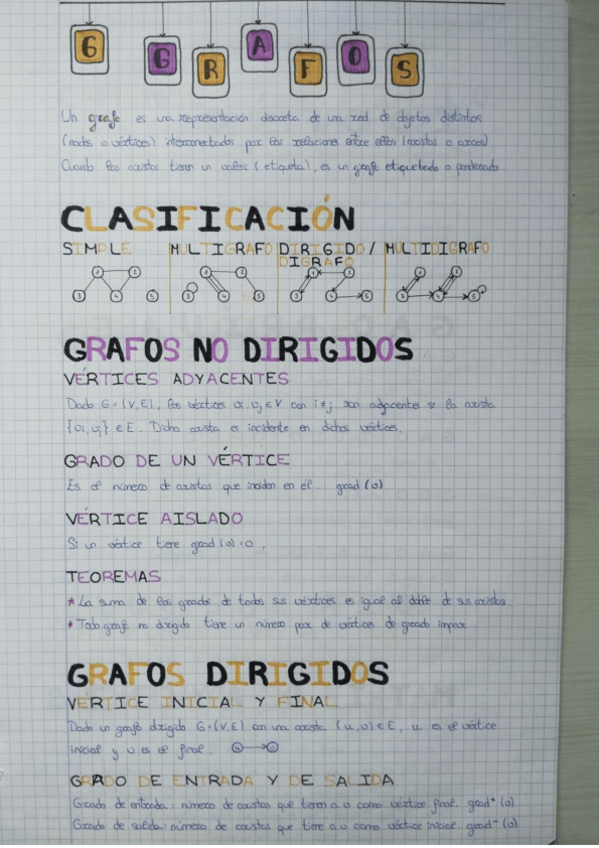 G GRAFOS
Un grafo es una representación discreta de una red de objetos distintos
(nodos o vértices) interconectados por las relaciones entre ellos (aristas o arcos).
Cuando las aristas tienen un valor (etiqueta), es un grafo etiquetado o ponderado.
CLASIFICACIÓN
SIMPLE MULTIGRAFO DIRIGIDO / MULTIDIGRAFO
DIGRAFO
GRAFOS NO DIRIGIDOS
VÉRTICES ADYACENTES
Dado G = (V,E), los vértices vi, vj ∈ V con i ≠ j son adyacentes si la arista
{vi, vj} ∈ E. Dicha arista es incidente en dichos vértices.
GRADO DE UN VÉRTICE
Es el número de aristas que inciden en él. grad (v)
VÉRTICE AISLADO
Si un vértice tiene grad (v) = 0.
TEOREMAS
* La suma de los grados de todos sus vértices es igual al doble de sus aristas.
* Todo grafo no dirigido tiene un número par de vértices de grado impar
GRAFOS DIRIGIDOS
VÉRTICE INICIAL Y FINAL
Dado un grafo dirigido G = (V,E) con una arista (u,v) ∈ E, u es el vértice
inicial y v es el final. u v
GRADO DE ENTRADA Y DE SALIDA
Grado de entrada: número de aristas que tienen a v como vértice final. grad⁺ (v)
Grado de salida: número de aristas que tiene a v como vértice inicial. grad⁻ (v)